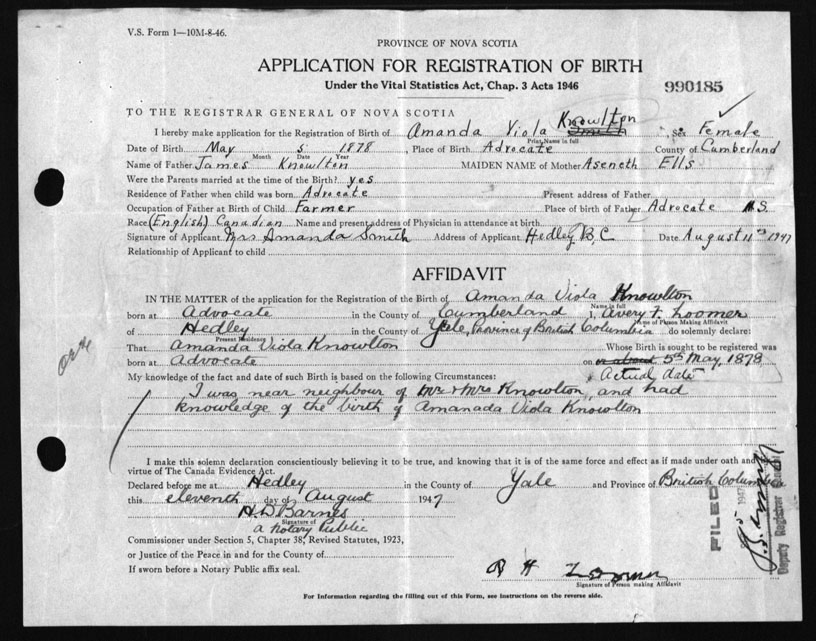 V.S. Form 1—10M-8-46.
PROVINCE OF NOVA SCOTIA
APPLICATION FOR REGISTRATION OF BIRTH
Under the Vital Statistics Act, Chap. 3 Acts 1946
990185
TO THE REGISTRAR GENERAL OF NOVA SCOTIA
Knowlton
I hereby make application for the Registration of Birth of Amanda Viola Smith, Sex Female
Print Name in full
Date of Birth May 5 1878, Place of Birth Advocate County of Cumberland
Month Date Year
Name of Father James Knowlton MAIDEN NAME of Mother Aseneth Ells
Were the Parents married at the time of the Birth? yes
Residence of Father when child was born Advocate Present address of Father
Occupation of Father at Birth of Child Farmer Place of birth of Father Advocate N.S.
Race (English) Canadian Name and present address of Physician in attendance at birth
Signature of Applicant Mrs Amanda Smith Address of Applicant Hedley B.C Date August 11th 1947
Relationship of Applicant to child
AFFIDAVIT
IN THE MATTER of the application for the Registration of the Birth of Amanda Viola Knowlton
Name in full
born at Advocate in the County of Cumberland I, Avery F. Loomer
Name of Person Making Affidavit
of Hedley in the County of Yale, Province of British Columbia do solemnly declare:
Present Residence
That Amanda Viola Knowlton Whose Birth is sought to be registered was
born at Advocate on or about 5th May, 1878
Actual date
My knowledge of the fact and date of such Birth is based on the following Circumstances:
I was near neighbour of Mr & Mrs Knowlton, and had
knowledge of the birth of Amanada Viola Knowlton
I make this solemn declaration conscientiously believing it to be true, and knowing that it is of the same force and effect as if made under oath and by
virtue of The Canada Evidence Act.
Declared before me at Hedley in the County of Yale and Province of British Columbia
this eleventh day of August 1947
H.D. Barnes
Signature of
a Notary Public
Commissioner under Section 5, Chapter 38, Revised Statutes, 1923,
or Justice of the Peace in and for the County of
If sworn before a Notary Public affix seal.
Loomer
Signature of Person making Affidavit
FILED
1947
Deputy Registrar General
For Information regarding the filling out of this Form, see instructions on the reverse side.